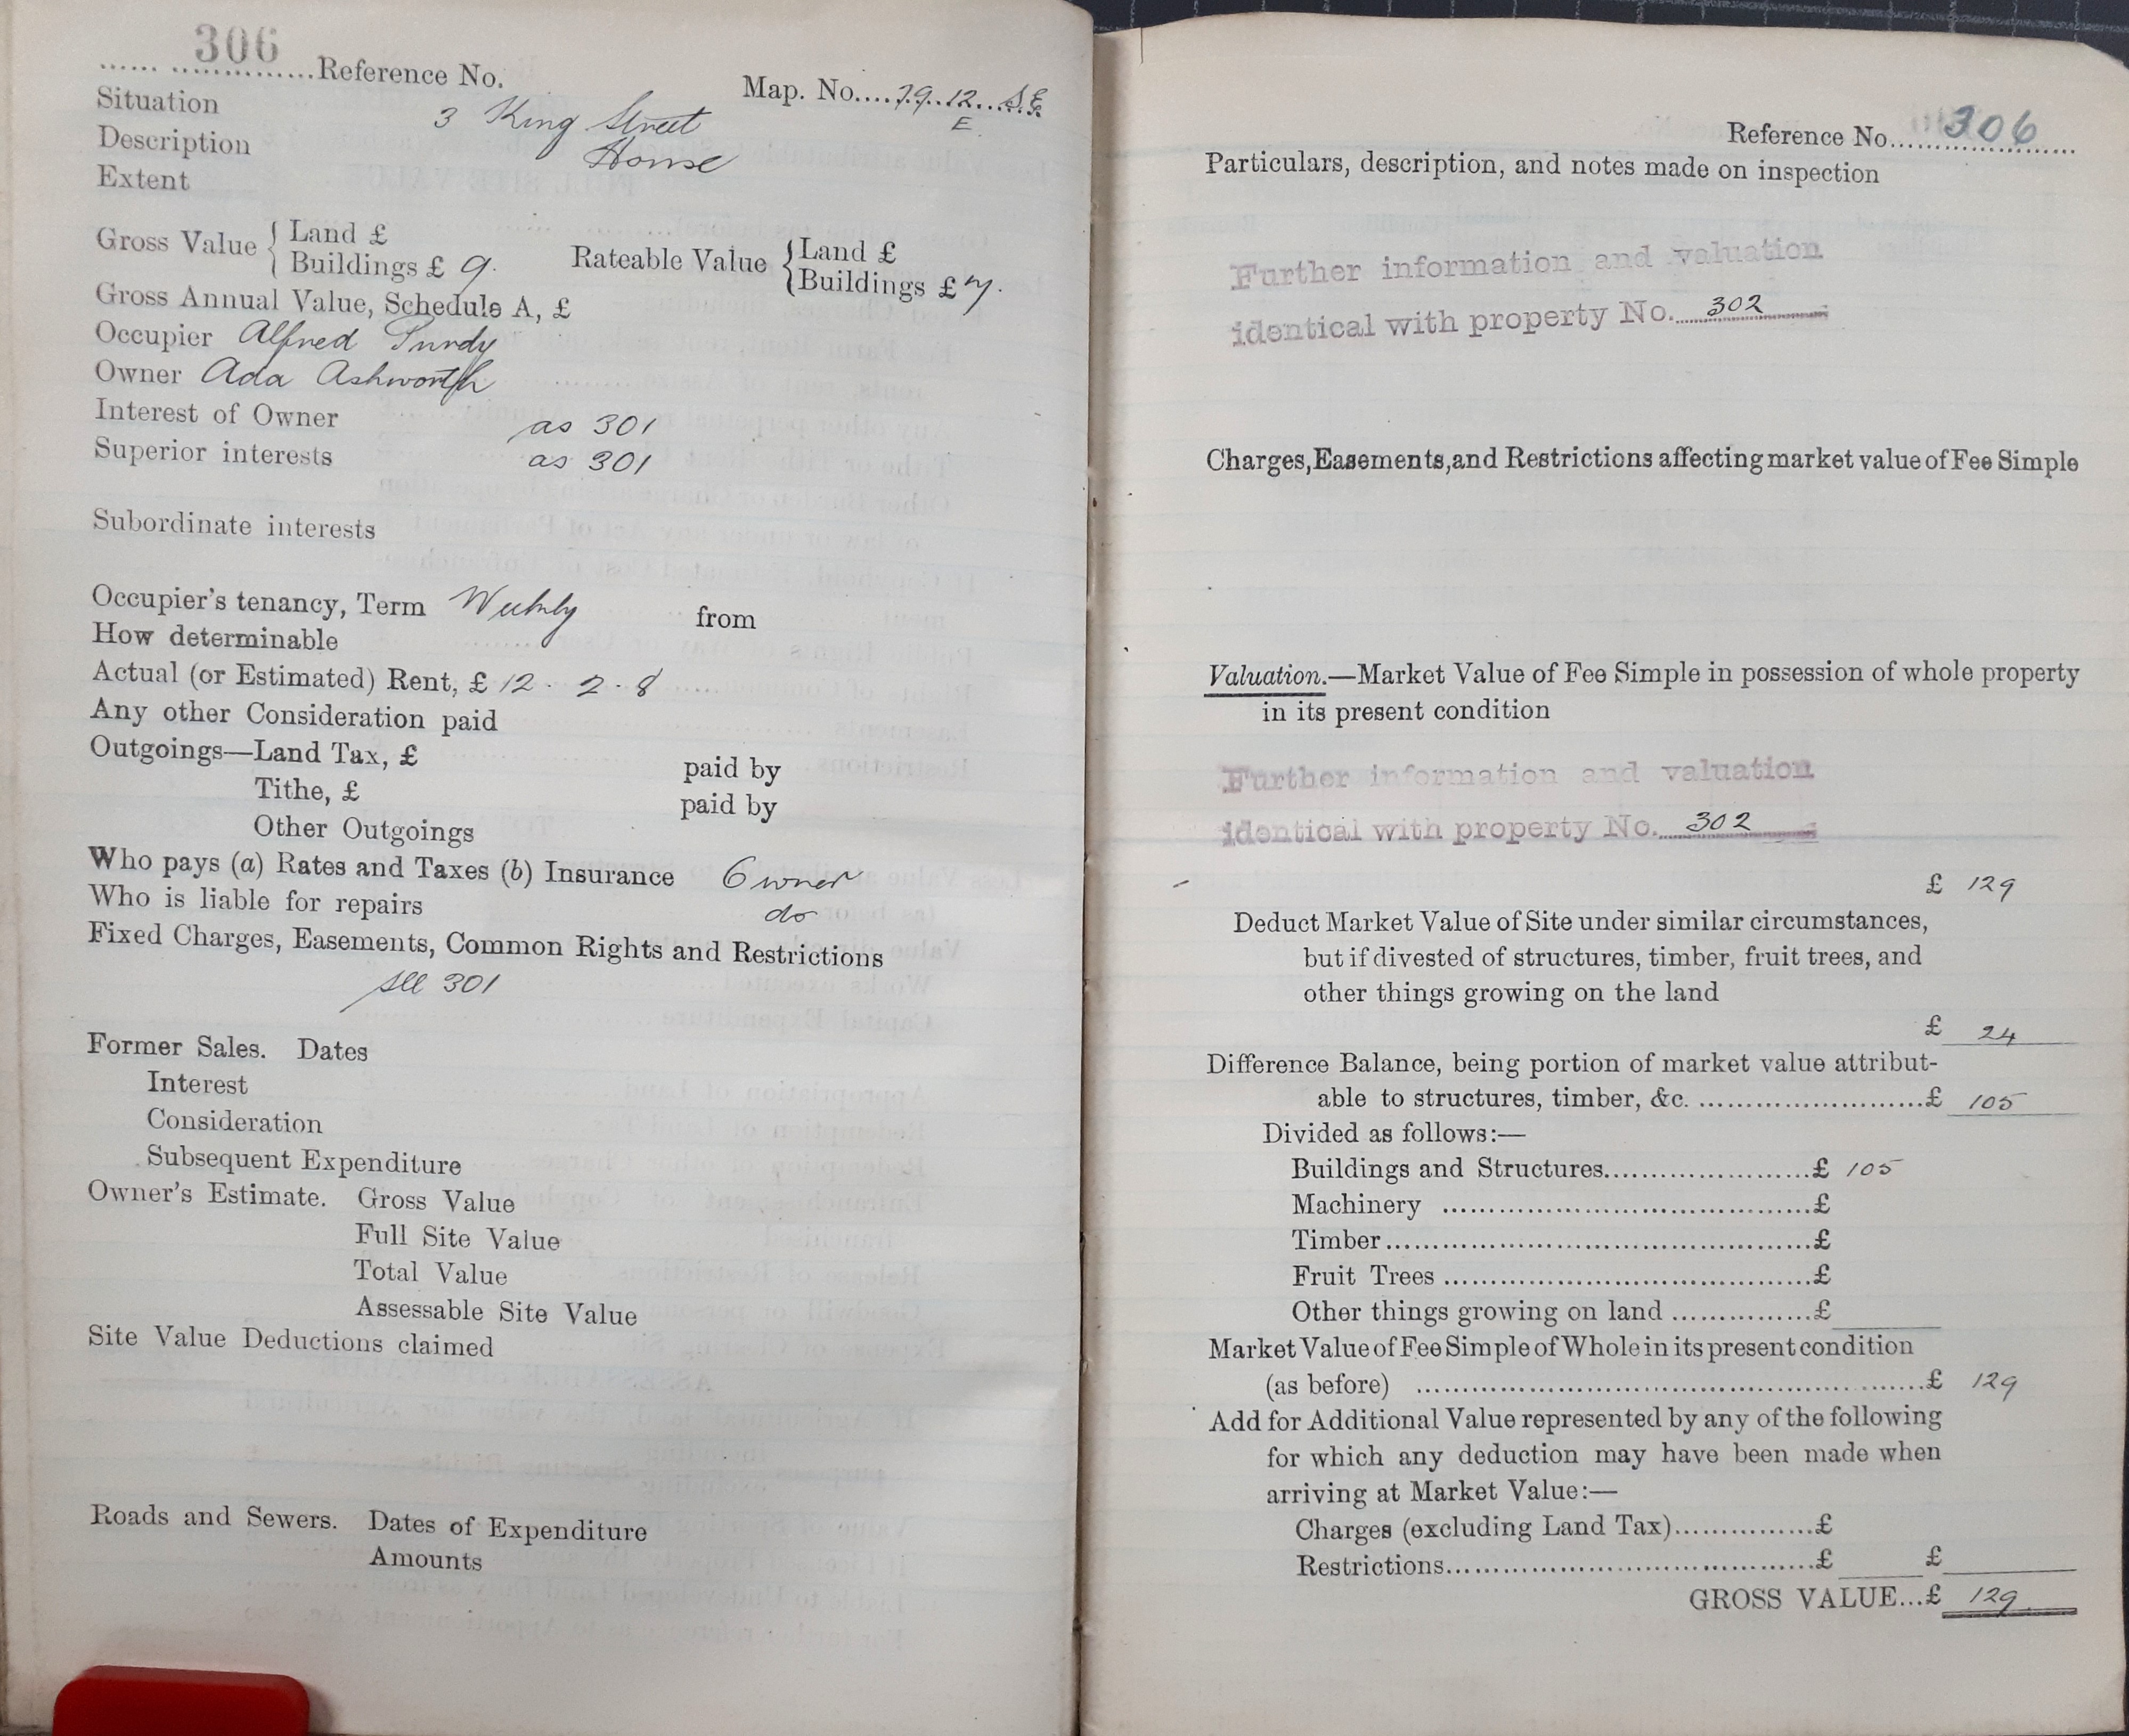 306
...... ...............Reference No.
Map. No....79..12....S.E.
E
Situation 3 King Street
Description House
Extent
Gross Value { Land £
Buildings £ 9.
Rateable Value { Land £
Buildings £ 7.
Gross Annual Value, Schedule A, £
Occupier Alfred Purdy
Owner Ada Ashworth
Interest of Owner as 301
Superior interests as 301
Subordinate interests
Occupier's tenancy, Term Weekly from
How determinable
Actual (or Estimated) Rent, £ 12 . 2 . 8
Any other Consideration paid
Outgoings—Land Tax, £ paid by
Tithe, £ paid by
Other Outgoings
Who pays (a) Rates and Taxes (b) Insurance Owner
Who is liable for repairs do
Fixed Charges, Easements, Common Rights and Restrictions
see 301
Former Sales. Dates
Interest
Consideration
Subsequent Expenditure
Owner's Estimate. Gross Value
Full Site Value
Total Value
Assessable Site Value
Site Value Deductions claimed
Roads and Sewers. Dates of Expenditure
Amounts
Reference No. 306
Particulars, description, and notes made on inspection
Further information and valuation
identical with property No. 302
Charges, Easements, and Restrictions affecting market value of Fee Simple
Valuation.—Market Value of Fee Simple in possession of whole property
in its present condition
Further information and valuation
identical with property No. 302
£ 129
Deduct Market Value of Site under similar circumstances,
but if divested of structures, timber, fruit trees, and
other things growing on the land
£ 24
Difference Balance, being portion of market value attribut-
able to structures, timber, &c. ........................£ 105
Divided as follows:—
Buildings and Structures......................£ 105
Machinery .......................................£
Timber.............................................£
Fruit Trees .......................................£
Other things growing on land ...............£
Market Value of Fee Simple of Whole in its present condition
(as before) .....................................................£ 129
Add for Additional Value represented by any of the following
for which any deduction may have been made when
arriving at Market Value:—
Charges (excluding Land Tax)...............£
Restrictions.......................................£ £
GROSS VALUE...£ 129